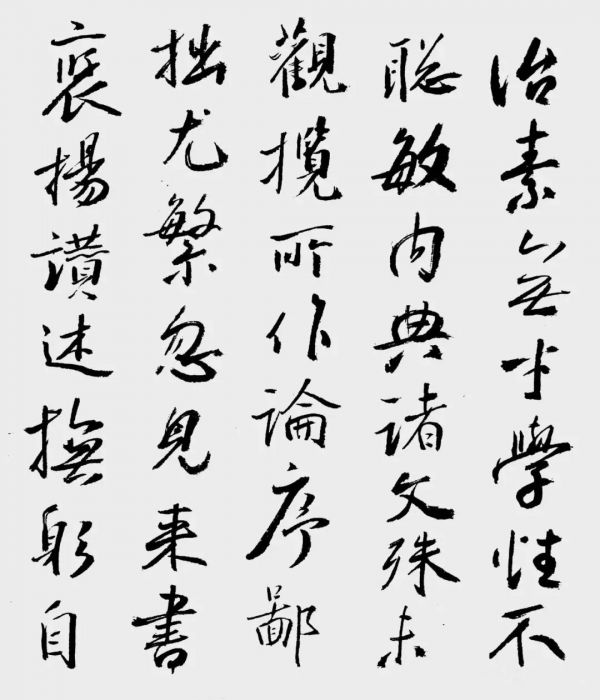 治素無才學性不
聰敏內典諸文殊未
觀攬所作論序鄙
拙尤繁忽見来書
褒揚讚述撫躬自